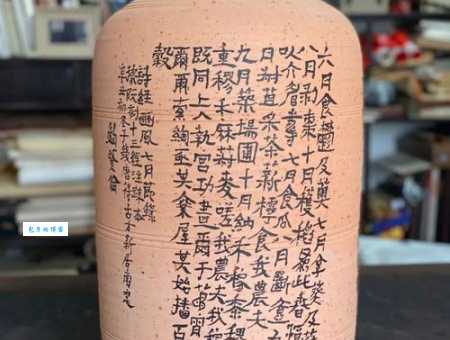 六月食鬱及薁七月亨葵及菽
八月剝棗十月穫稻為此春酒
以介眉壽七月食瓜八月斷壺九
月叔苴采荼薪樗食我農夫
九月築場圃十月納禾稼黍稷
重穋禾麻菽麥嗟我農夫我稼
既同上入執宮功晝爾于茅宵
爾索綯亟其乘屋其始播百
穀
詩經豳風七月節錄
據阮刻十三經注疏本
辛丑初冬于